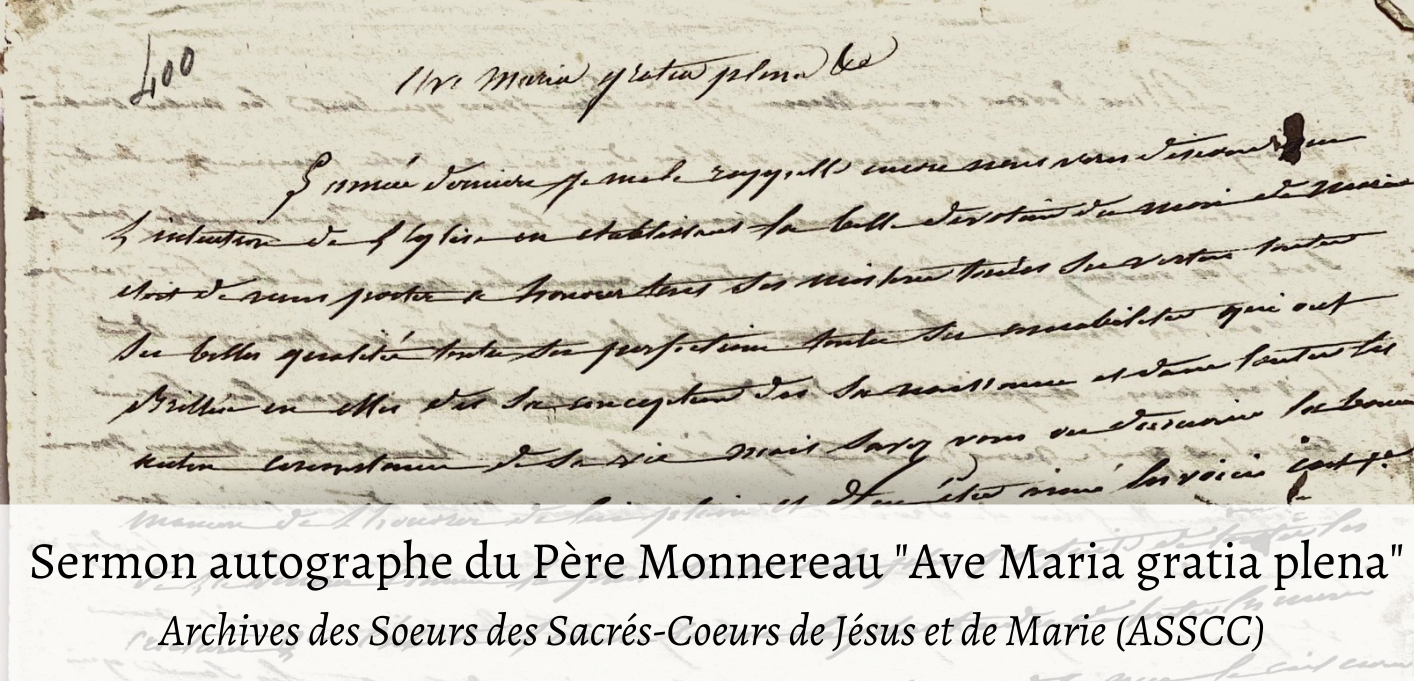 400
Ave Maria gratia plena &c
L'année derniere je me le rappelle encore nous vous disions que
L'intention de L'Eglise en etablissant la belle devotion du mois de Marie
etoit de nous porter a honorer tous ses misteres toutes ses vertus toutes
ses belles qualités toutes ses perfections toutes ses amabilités qui ont
Brillées en elles des sa conception des sa naissance et dans toutes les
autres circonstances de sa vie mais savez vous ou découvrir la bonne
maniere de L'honorer de lui plaire et d'en être aimé La voici c'est que
Sermon autographe du Père Monnereau "Ave Maria gratia plena"
Archives des Soeurs des Sacrés-Coeurs de Jésus et de Marie (ASSCC)